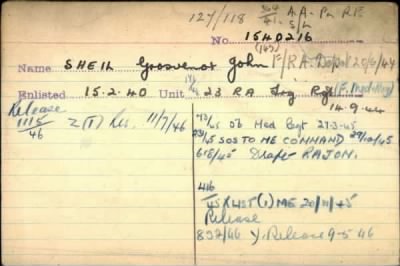 127/118 A.A - Pn R.F.
41. S/L
No. 1540216
Name SHEIL Grosvenor John F/RA. Depot 20/6/44
Enlisted 15.2.40 Unit 23 RA Trg Rgt
14.9.44
Release
1115/46 Z(T) Res. 11/7/46
/45 Med Regt 27-3-45
/45 SOS TO ME COMMAND 29/10/45
/45 Draft RAJON.
416/45 X LIST (1) ME 20/11/45
Release
832/46 Y. Release 9-5 46